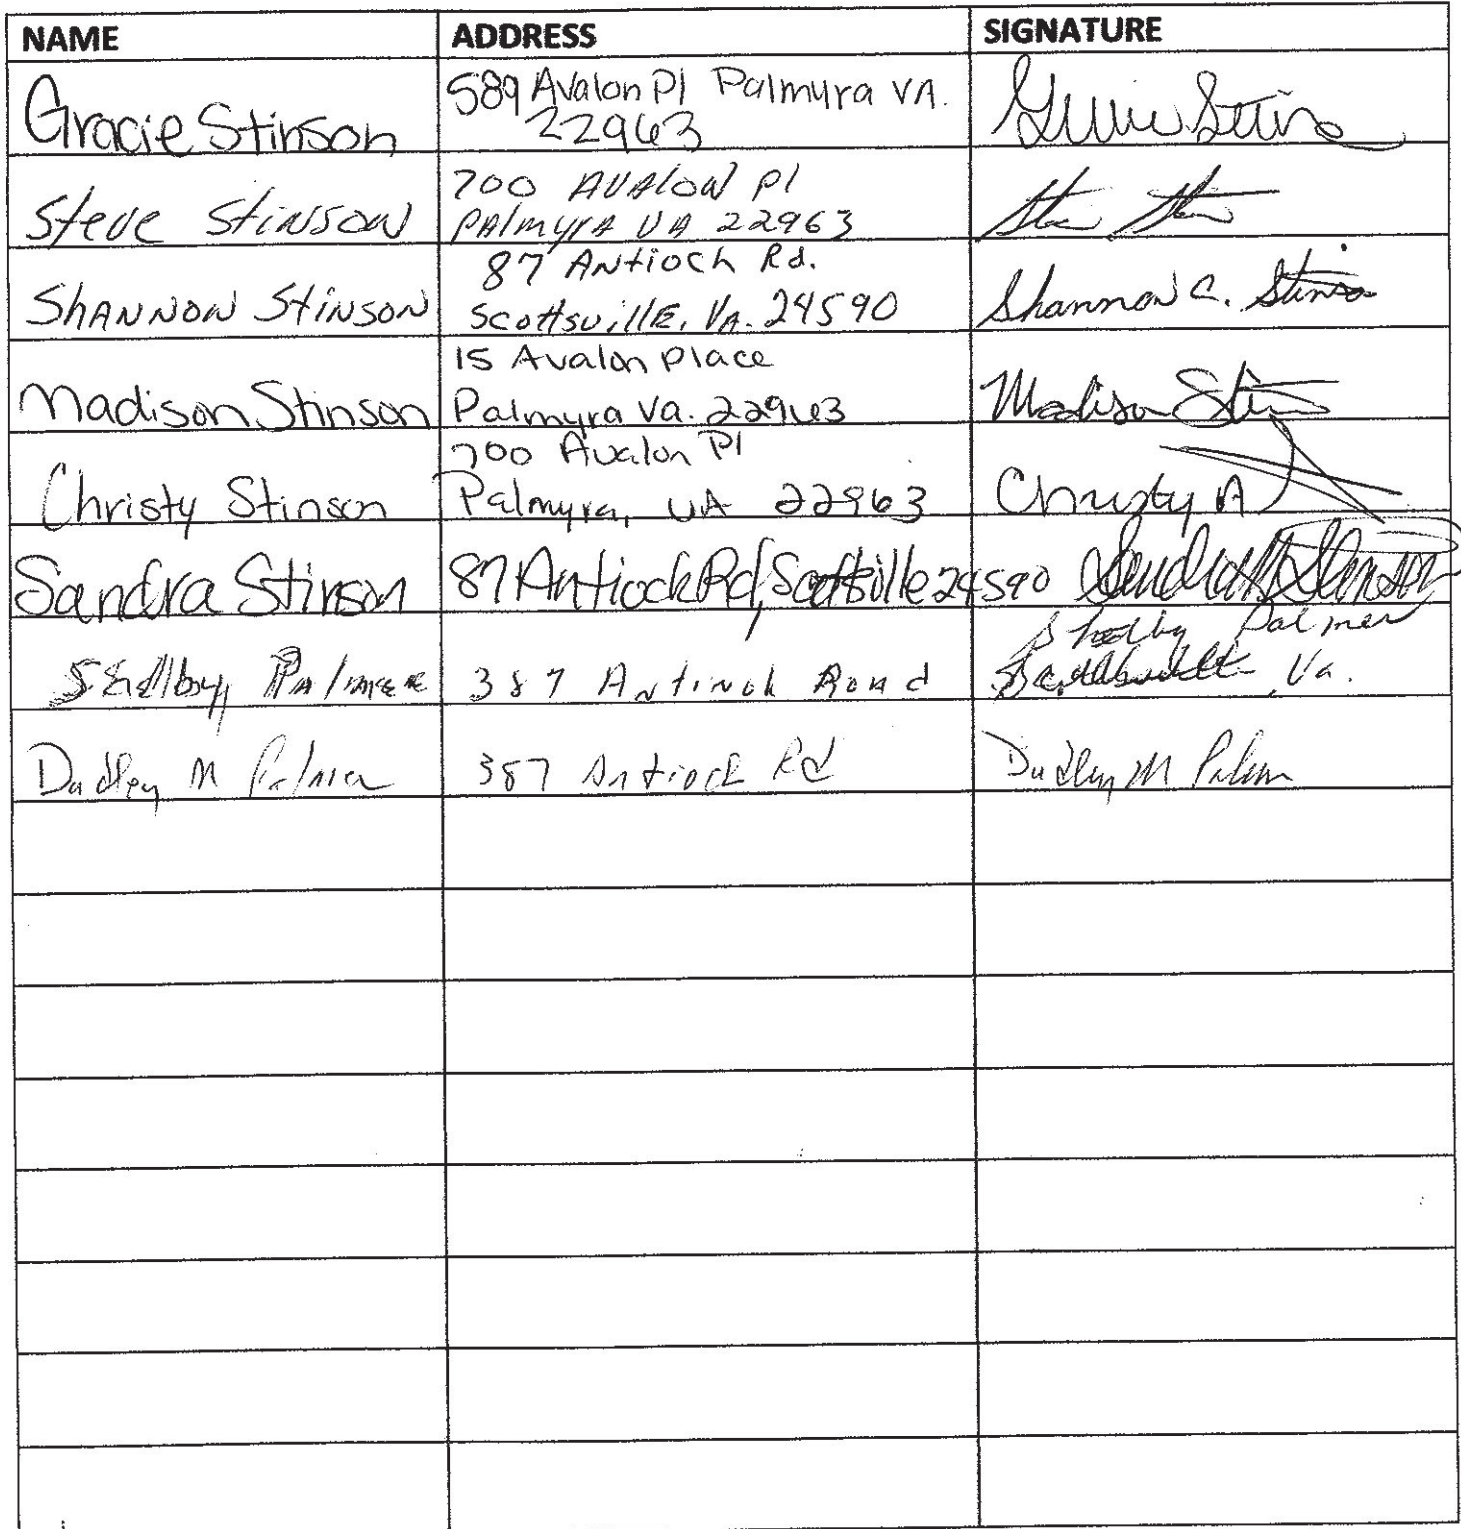 NAME ADDRESS SIGNATURE
Gracie Stinson 589 Avalon Pl Palmyra VA.
22963 Gracie Stinson
Steve Stinson 700 Avalon Pl
Palmyra VA 22963
Shannon Stinson 87 Antioch Rd.
Scottsville, VA. 24590 Shannon C. Stinson
Madison Stinson 15 Avalon Place
Palmyra Va. 22963 Madison Stinson
Christy Stinson 700 Avalon Pl
Palmyra, VA 22963 Christy A
Sandra Stinson 87 Antiock Rd, Scottsville 24590 Sandra M Stinson
Shelby Palmer 387 Antioch Road Shelby Palmer
Va.
Dudley M Palmer 387 Antioch Rd Dudley M Palmer